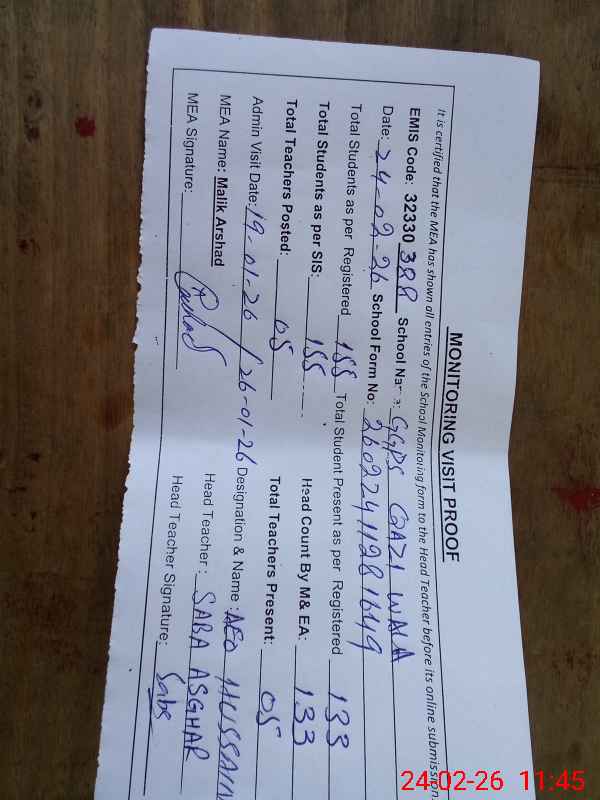 MONITORING VISIT PROOF
It is certified that the MEA has shown all entries of the School Monitoring form to the Head Teacher before its online submission.
EMIS Code: 32330388 School Name: GGPS QAZI WALA
Date: 24-02-26 School Form No: 26022411281649
Total Students as per Registered 155 Total Student Present as per Registered 133
Total Students as per SIS: 155 Head Count By M& EA: 133
Total Teachers Posted: 05 Total Teachers Present: 05
Admin Visit Date: 19-01-26 / 26-01-26 Designation & Name: AEO HUSSAIN
MEA Name: Malik Arshad Head Teacher: SABA ASGHAR
MEA Signature: Arshad Head Teacher Signature: Saba
24-02-26 11:45